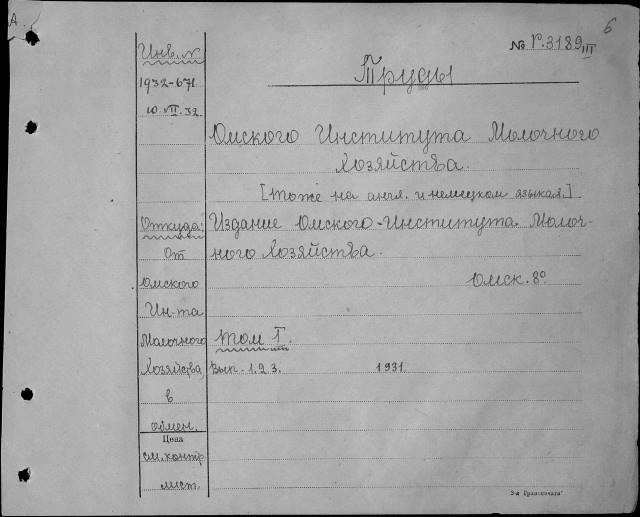 А.
6
№ Г.3189 III
Труды
Омского Института Молочного
Хозяйства.
[тоже на англ. и немецком языках.]
Издание Омского Института Молоч-
ного Хозяйства.
Омск. 8°
Том I.
Вып. 1. 2. 3. 1931.
Инв. №
1932-671
10.VII.32
Откуда:
От
Омского
Ин-та
Молочного
Хозяйства
в
обмен.
Цена
см. контр.
лист.